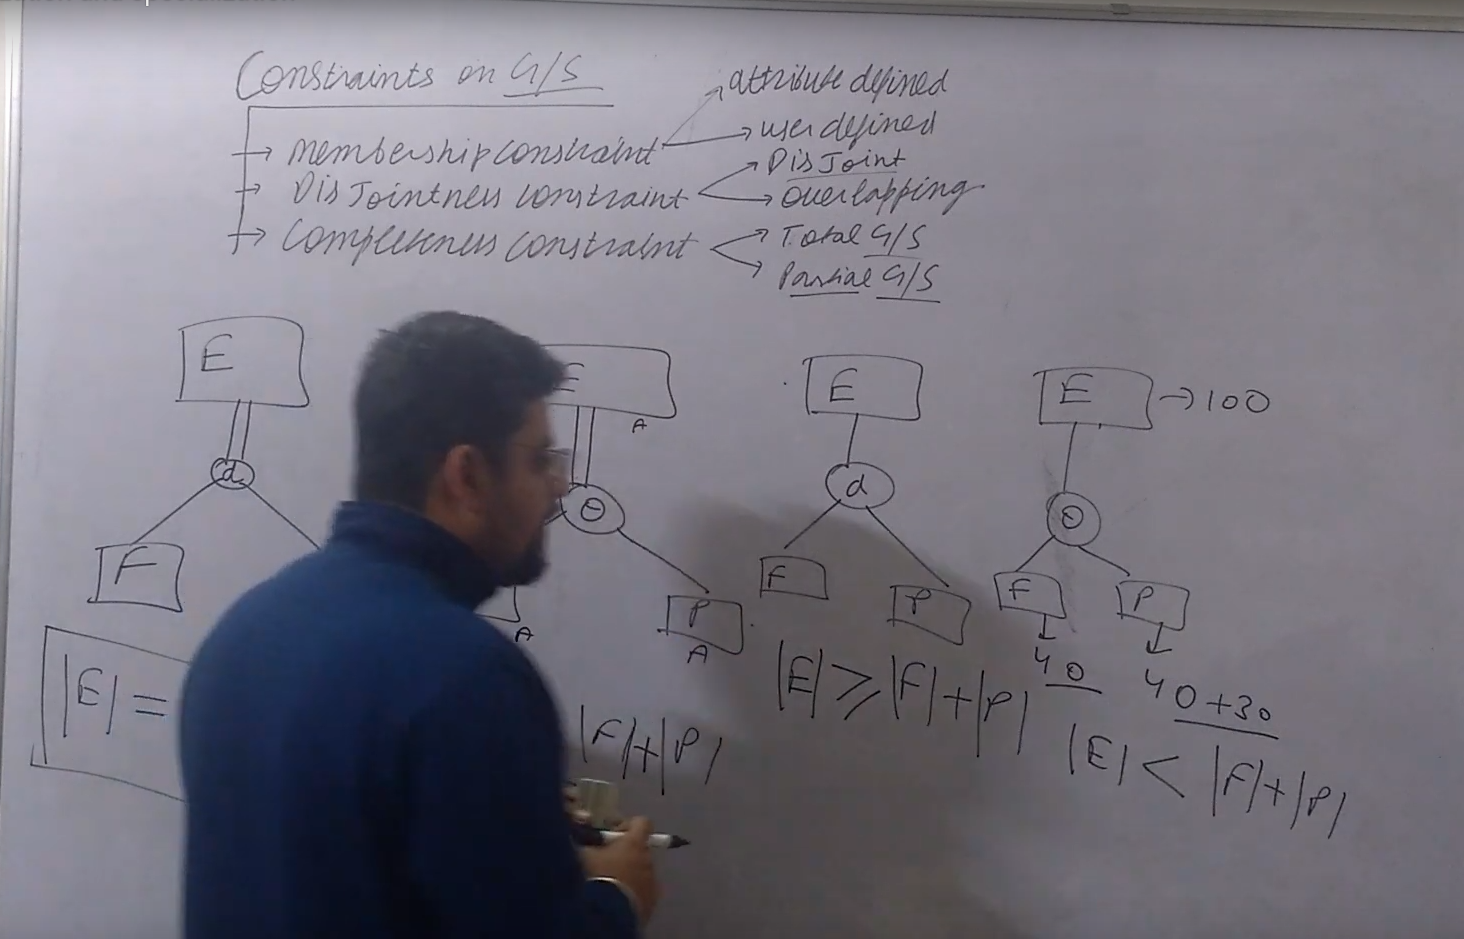 and specialization
Constraints on G/S
→ Membership constraint → attribute defined
→ user defined
→ DisJointness constraint → DisJoint
→ Overlapping
→ Completeness constraint → Total G/S
→ Partial G/S
E
d
F
|E| =
E
A
O
A
P
A
|F|+|P|
E
d
F
P
|E| ≥ |F|+|P|
E → 100
O
F
P
40
40+30
|E| < |F|+|P|